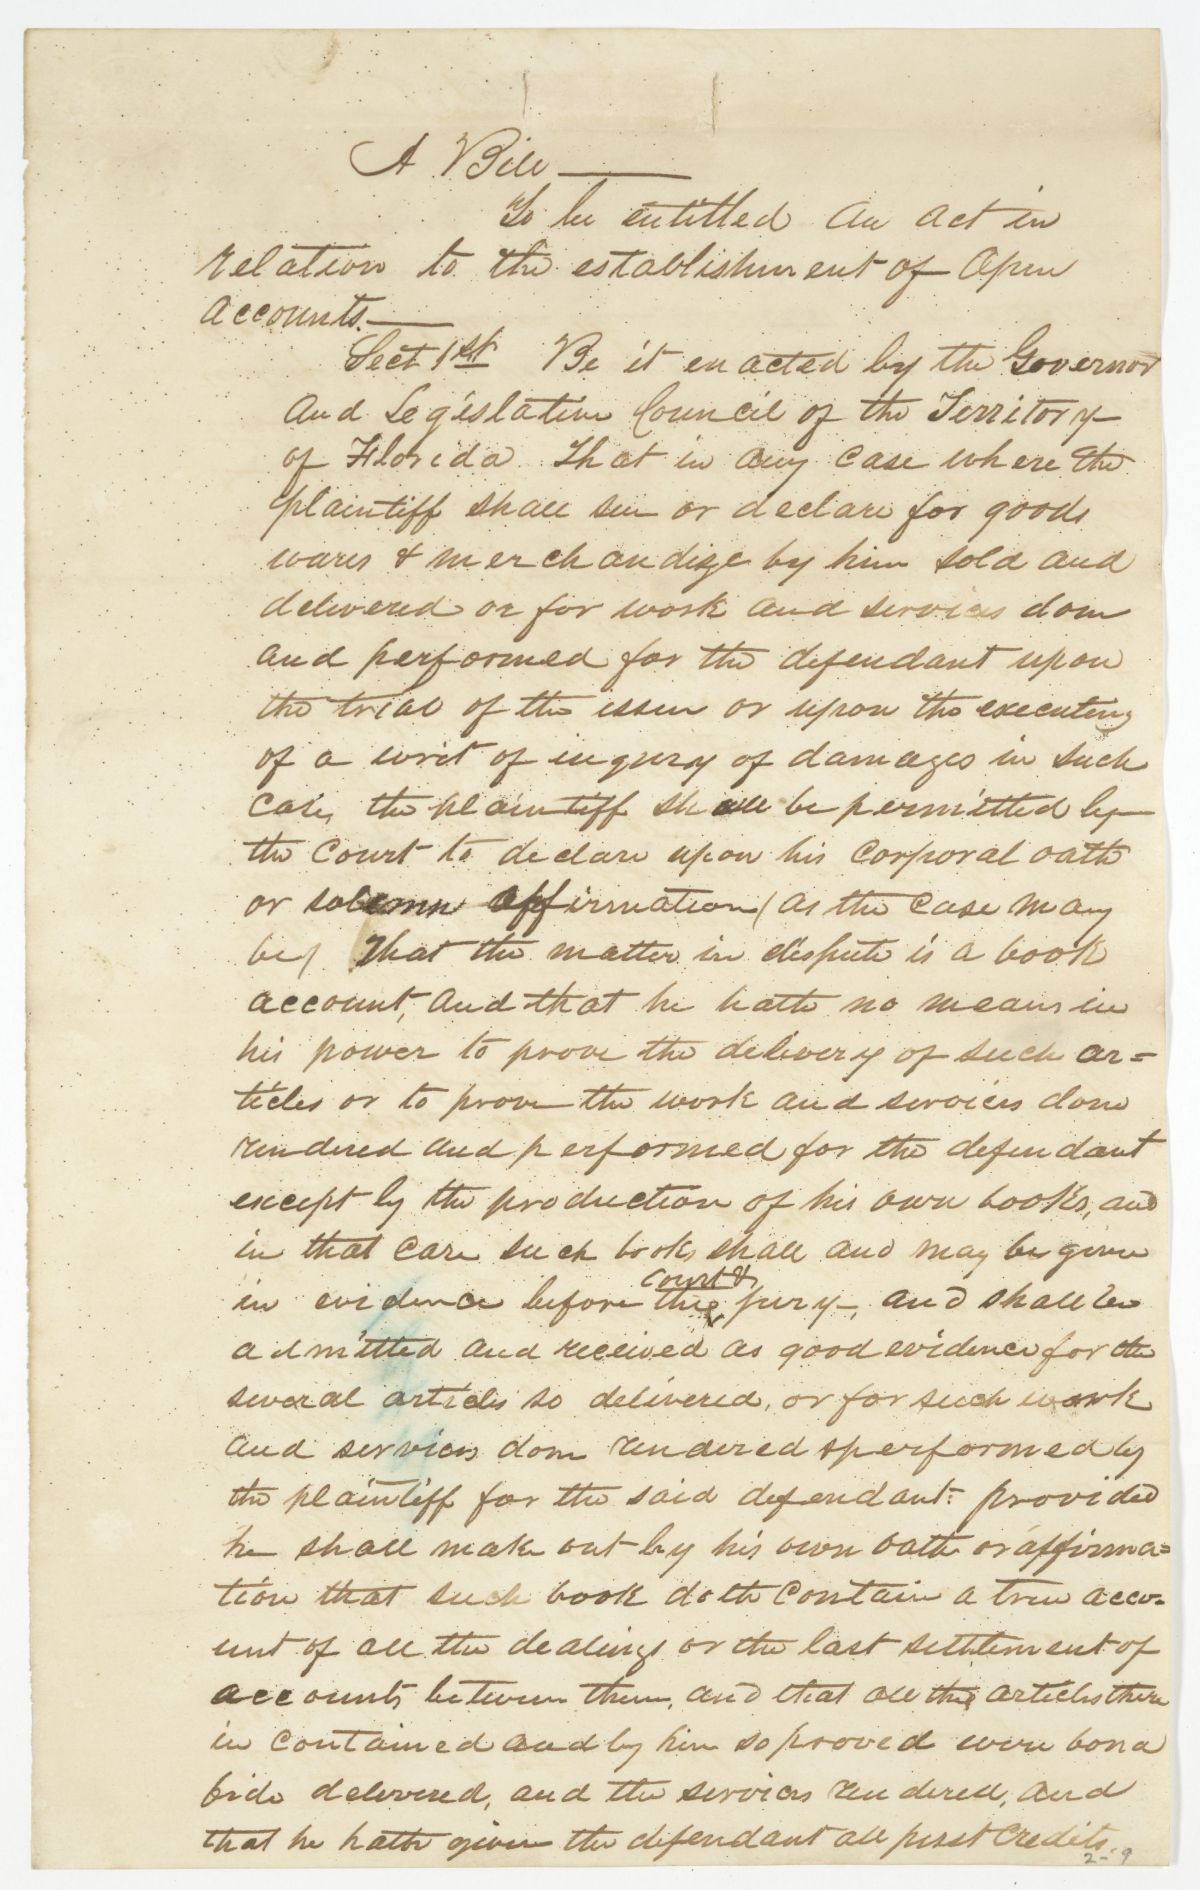 A Bill
To be entitled An act in
relation to the establishment of Open
accounts.
Sect 1st Be it enacted by the Governor
And Legislative Council of the Territory
of Florida That in any case where the
plaintiff shall sue or declare for goods
wares & merchandize by him sold and
delivered or for work and services done
and performed for the defendant upon
the trial of the issue or upon the executing
of a writ of inqury of damages in such
case, the plaintiff shall be permitted by
the Court to declare upon his corporal oath
or solemn affirmation (as the case may
be) That the matter in dispute is a book
account, and that he hath no means in
his power to prove the delivery of such ar=
ticles or to prove the work and services done
rendered and performed for the defendant
except by the production of his own books, and
in that case such books shall and may be given
Court &
in evidence before the jury, and shall be
admitted and received as good evidence for the
several articles so delivered, or for such work
and services done rendered & performed by
the plaintiff for the said defendant: provided
he shall make out by his own oath or affirma=
tion that such book doth contain a true acco=
unt of all the dealings or the last settlement of
accounts between them, and that all the articles there
in contained and by him so proved were bona
fide delivered, and the services rendered, and
that he hath given the defendant all just Credits.
2-9